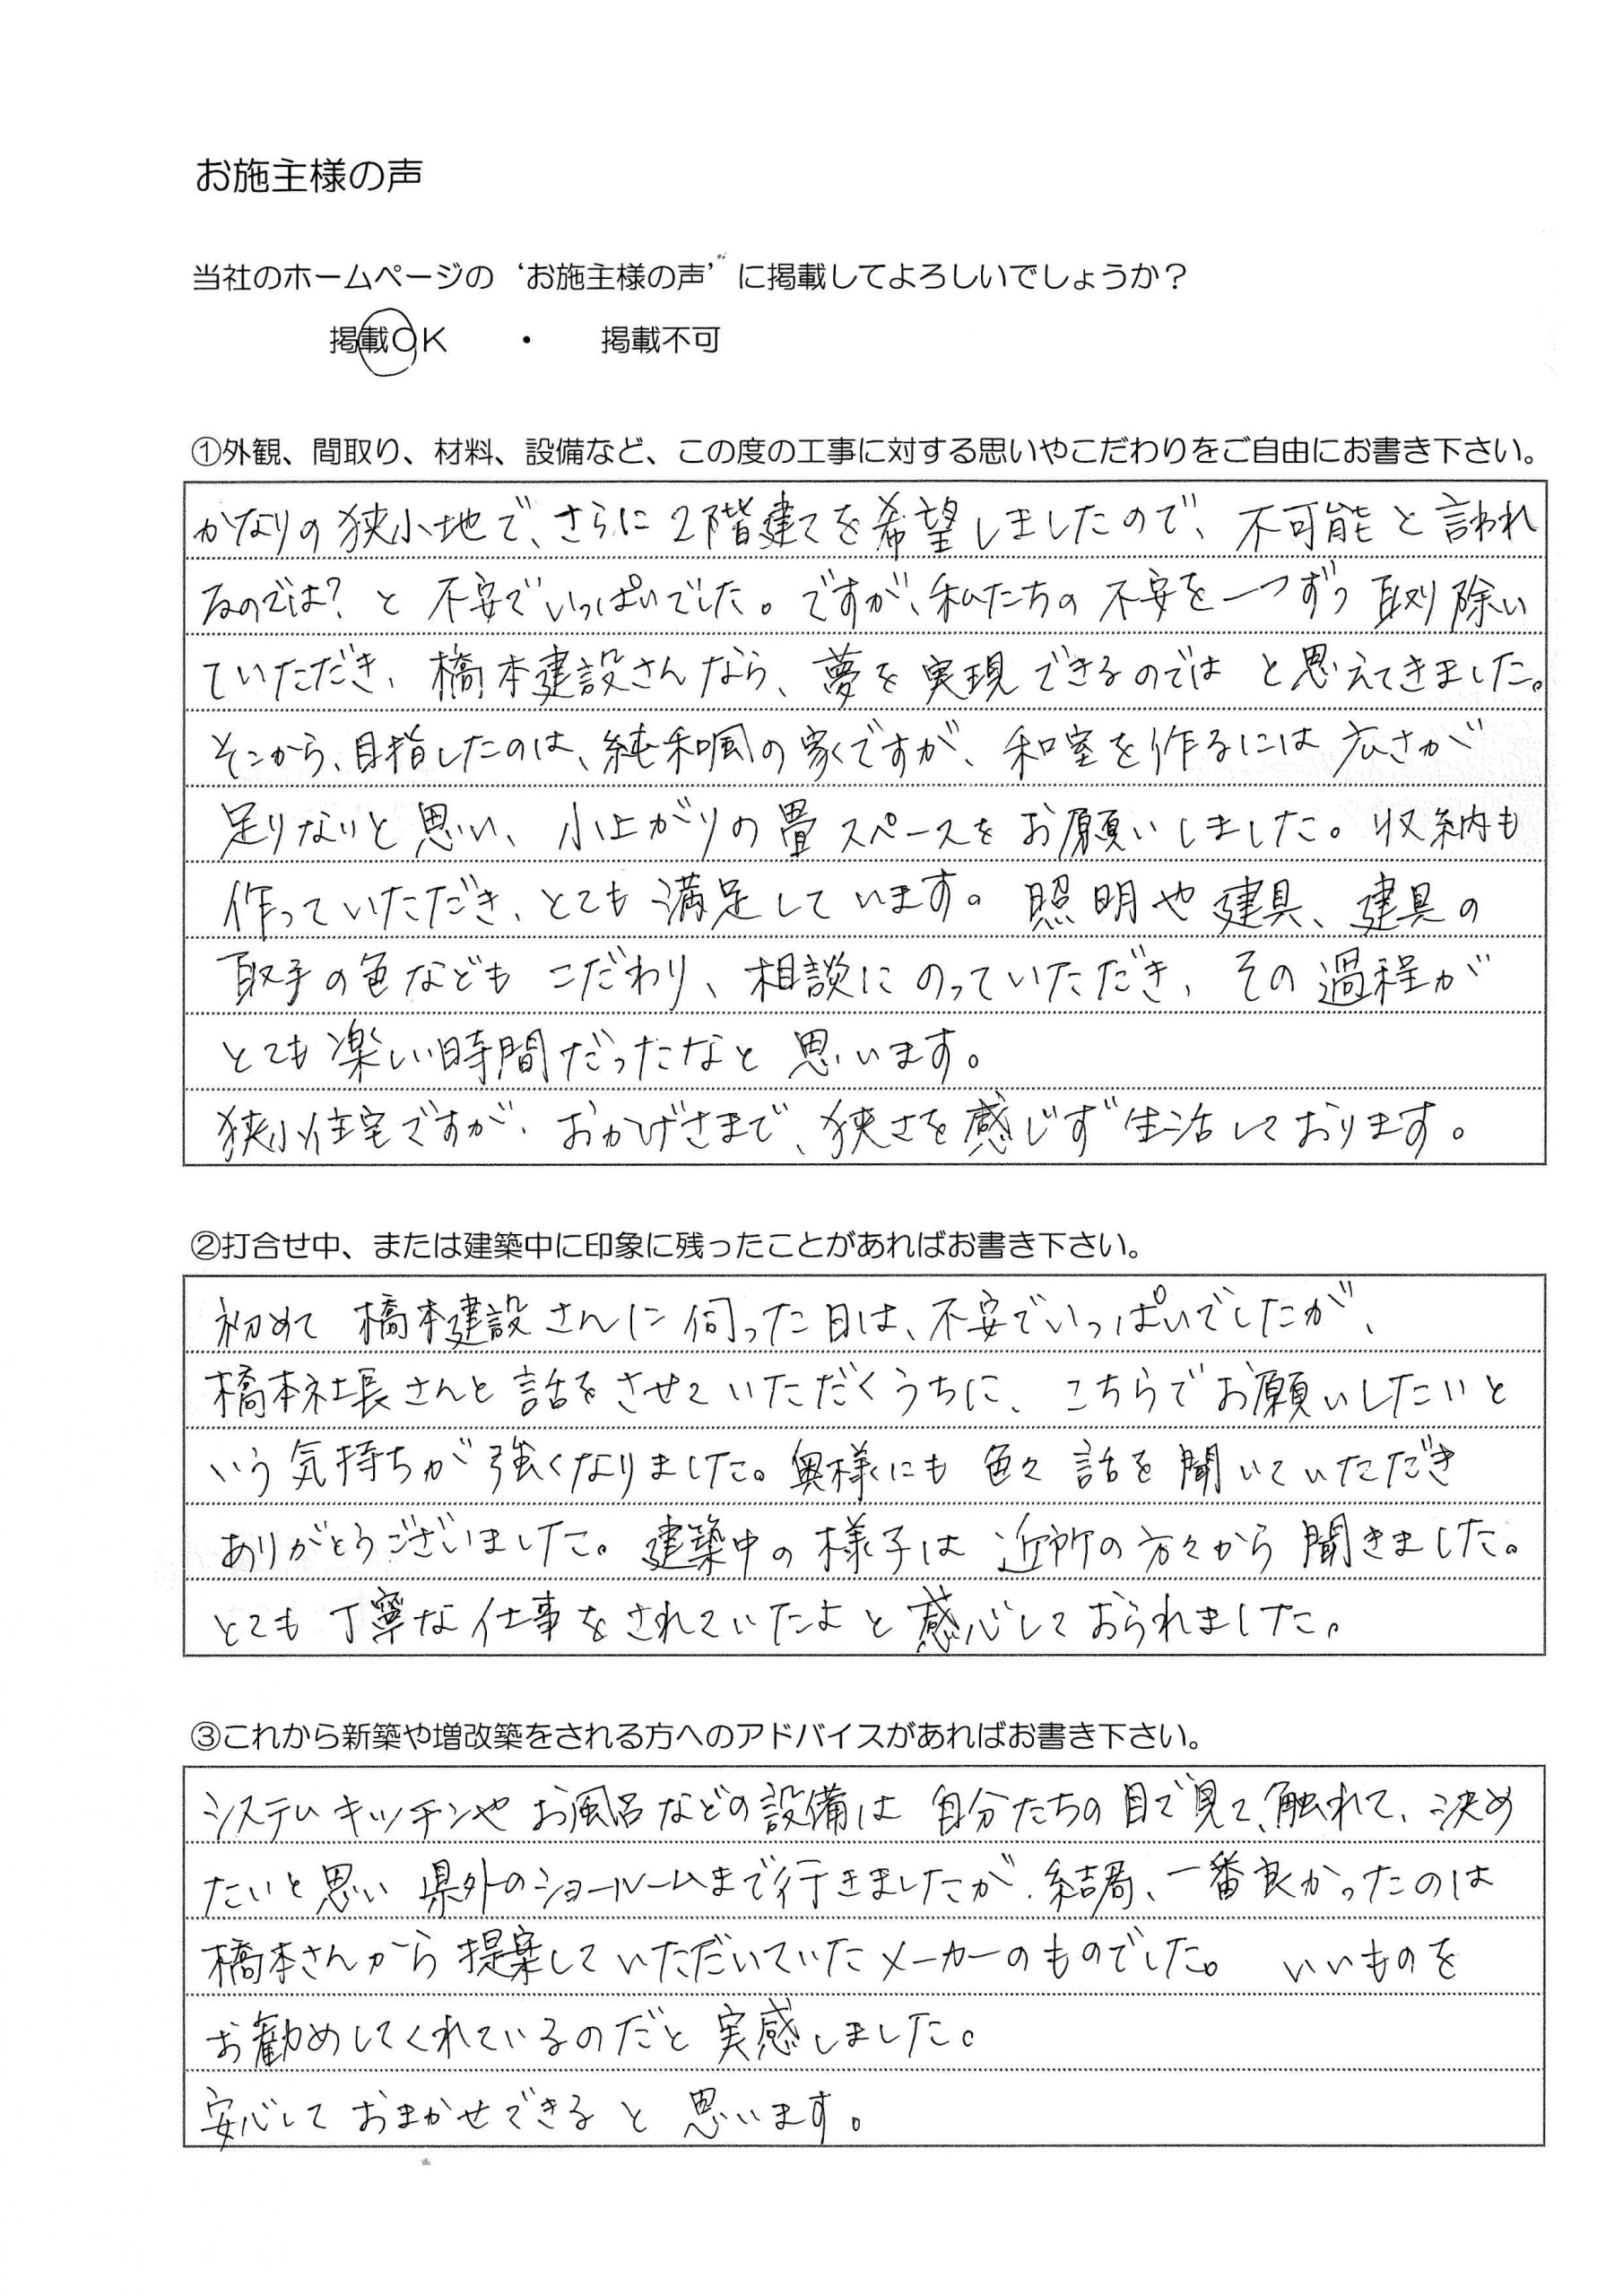 お施主様の声
当社のホームページの‘お施主様の声’に掲載してよろしいでしょうか？
掲載OK ・ 掲載不可
①外観、間取り、材料、設備など、この度の工事に対する思いやこだわりをご自由にお書き下さい。
かなりの狭小地で、さらに2階建てを希望しましたので、不可能と言われ
るのでは？と不安でいっぱいでした。ですが、私たちの不安を一つずつ取り除い
ていただき、橋本建設さんなら、夢を実現できるのではと思えてきました。
そこから、目指したのは、純和風の家ですが、和室を作るには広さが
足りないと思い、小上がりの畳スペースをお願いしました。収納も
作っていただき、とても満足しています。照明や建具、建具の
取手の色などもこだわり、相談にのっていただき、その過程が
とても楽しい時間だったなと思います。
狭小住宅ですが、おかげさまで、狭さを感じず生活しております。
②打合せ中、または建築中に印象に残ったことがあればお書き下さい。
初めて橋本建設さんに伺った日は、不安でいっぱいでしたが、
橋本社長さんと話をさせていただくうちに、こちらでお願いしたいと
いう気持ちが強くなりました。奥様にも色々話を聞いていただき
ありがとうございました。建築中の様子は近所の方々から聞きました。
とても丁寧な仕事をされていたよと感心しておられました。
③これから新築や増改築をされる方へのアドバイスがあればお書き下さい。
システムキッチンやお風呂などの設備は自分たちの目で見て、触れて、決め
たいと思い県外のショールームまで行きましたが、結局、一番良かったのは
橋本さんから提案していただいていたメーカーのものでした。いいものを
お勧めしてくれているのだと実感しました。
安心しておまかせできると思います。